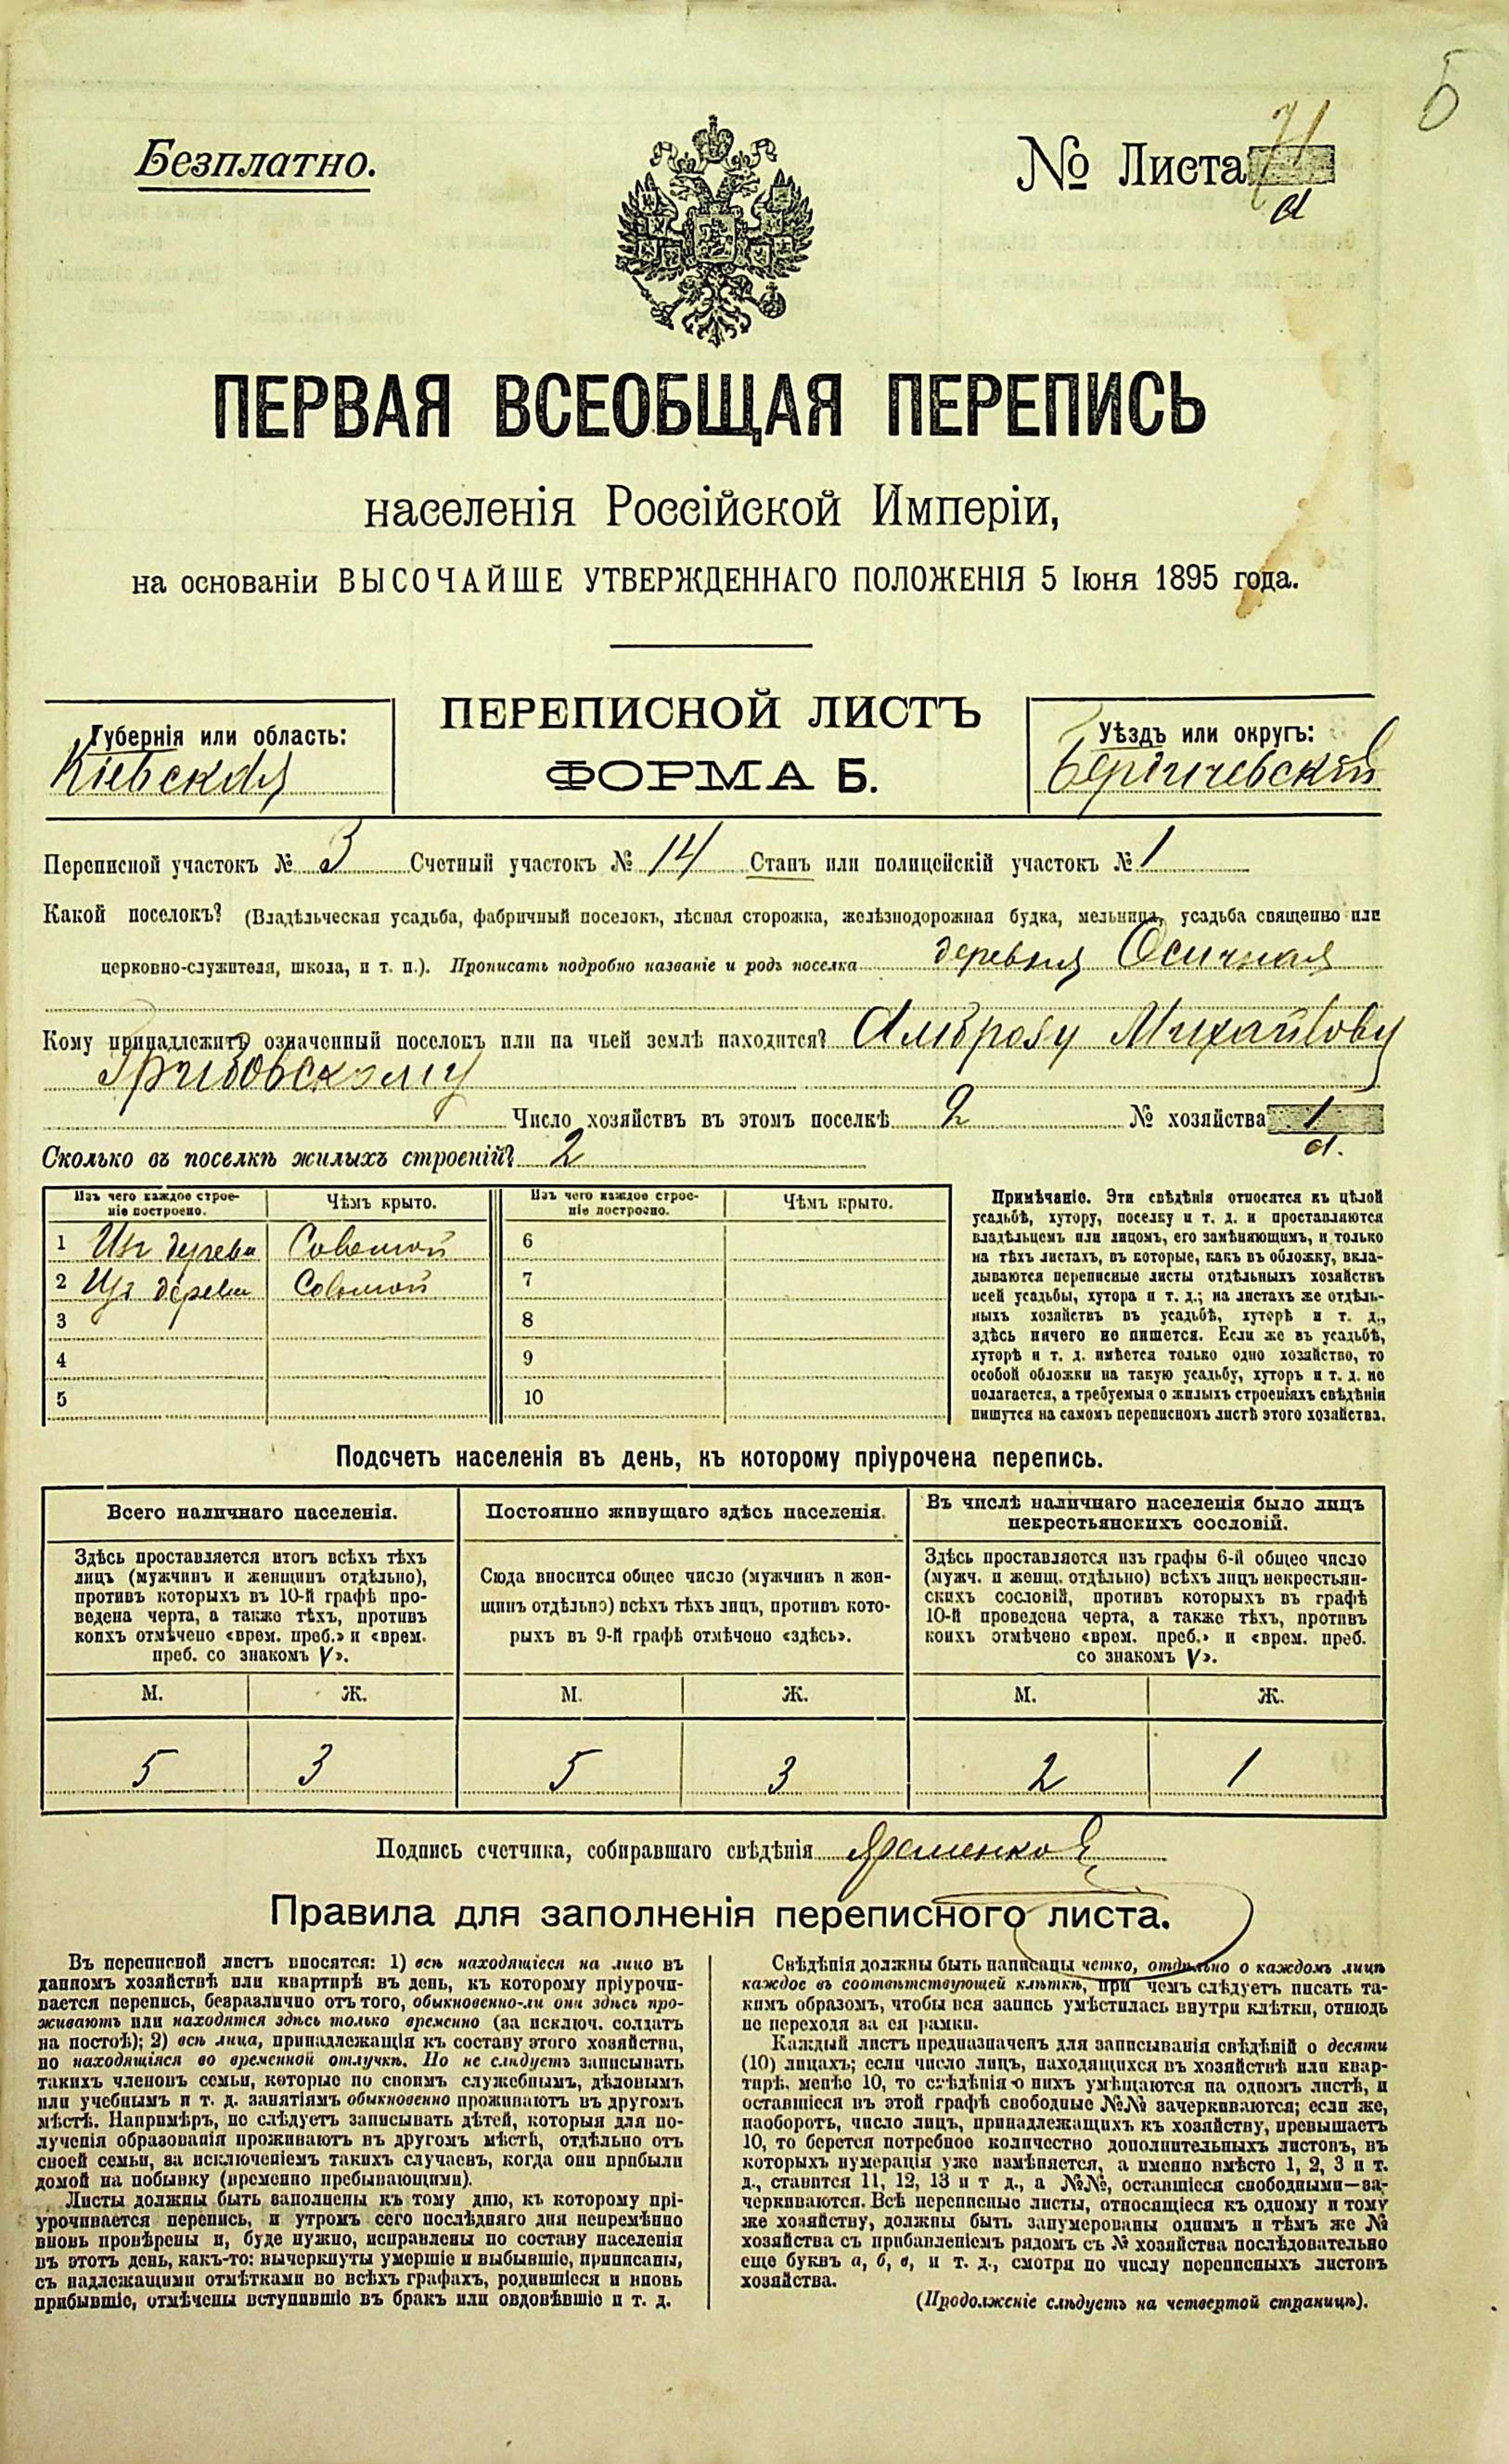 5
Безплатно.
№ Листа
a
ПЕРВАЯ ВСЕОБЩАЯ ПЕРЕПИСЬ
населенія Россійской Имперіи,
на основаніи ВЫСОЧАЙШЕ УТВЕРЖДЕННАГО ПОЛОЖЕНІЯ 5 Іюня 1895 года.
ПЕРЕПИСНОЙ ЛИСТЪ
ФОРМА Б.
Губернія или область:
Кіевская
Уѣздъ или округъ:
Бердичевскій
Переписной участокъ № 3 Счетный участокъ № 14 Станъ или полицейскій участокъ № 1
Какой поселокъ? (Владѣльческая усадьба, фабричный поселокъ, лѣсная сторожка, желѣзнодорожная будка, мельница, усадьба священно или
церковно-служителя, школа, и т. п.). Прописать подробно названіе и родъ поселка деревня Осичная
Кому принадлежитъ означенный поселокъ или на чьей землѣ находится? Амврозу Михайлову
Грибовскому
Число хозяйствъ въ этомъ поселкѣ 2 № хозяйства 1
a.
Сколько въ поселкѣ жилыхъ строеній? 2
Изъ чего каждое строеніе построено. Чѣмъ крыто. Изъ чего каждое строеніе построено. Чѣмъ крыто.
1 Изъ дерева Соломой 6
2 Изъ дерева Соломой 7
3 8
4 9
5 10
Примѣчаніе. Эти свѣдѣнія относятся къ цѣлой
усадьбѣ, хутору, поселку и т. д. и проставляются
владѣльцемъ или лицомъ, его замѣняющимъ, и только
на тѣхъ листахъ, въ которые, какъ въ обложку, вкла-
дываются переписные листы отдѣльныхъ хозяйствъ
всей усадьбы, хутора и т. д.; на листахъ же отдѣль-
ныхъ хозяйствъ въ усадьбѣ, хуторѣ и т. д.,
здѣсь ничего не пишется. Если же въ усадьбѣ,
хуторѣ и т. д. имѣется только одно хозяйство, то
особой обложки на такую усадьбу, хуторъ и т. д. не
полагается, а требуемыя о жилыхъ строеніяхъ свѣдѣнія
пишутся на самомъ переписномъ листѣ этого хозяйства.
Подсчетъ населенія въ день, къ которому пріурочена перепись.
Всего наличнаго населенія.
Здѣсь проставляется итогъ всѣхъ тѣхъ
лицъ (мужчинъ и женщинъ отдѣльно),
противъ которыхъ въ 10-й графѣ про-
ведена черта, а также тѣхъ, противъ
коихъ отмѣчено «врем. преб.» и «врем.
преб. со знакомъ V».
М. Ж.
5 3
Постоянно живущаго здѣсь населенія.
Сюда вносится общее число (мужчинъ и жен-
щинъ отдѣльно) всѣхъ тѣхъ лицъ, противъ кото-
рыхъ въ 9-й графѣ отмѣчено «здѣсь».
М. Ж.
5 3
Въ числѣ наличнаго населенія было лицъ
некрестьянскихъ сословій.
Здѣсь проставляются изъ графы 6-й общее число
(мужч. и женщ. отдѣльно) всѣхъ лицъ некрестьян-
скихъ сословій, противъ которыхъ въ графѣ
10-й проведена черта, а также тѣхъ, противъ
коихъ отмѣчено «врем. преб.» и «врем. преб.
со знакомъ V».
М. Ж.
2 1
Подпись счетчика, собиравшаго свѣдѣнія
Правила для заполненія переписного листа.
Въ переписной листъ вносятся: 1) всѣ находящіеся на лицо въ
данномъ хозяйствѣ или квартирѣ въ день, къ которому пріурочи-
вается перепись, безразлично отъ того, обыкновенно-ли они здѣсь про-
живаютъ или находятся здѣсь только временно (за исключ. солдатъ
на постоѣ); 2) всѣ лица, принадлежащія къ составу этого хозяйства,
но находящіяся во временной отлучкѣ. Но не слѣдуетъ записывать
такихъ членовъ семьи, которые по своимъ служебнымъ, дѣловымъ
или учебнымъ и т. д. занятіямъ обыкновенно проживаютъ въ другомъ
мѣстѣ. Напримѣръ, не слѣдуетъ записывать дѣтей, которыя для по-
лученія образованія проживаютъ въ другомъ мѣстѣ, отдѣльно отъ
своей семьи, за исключеніемъ такихъ случаевъ, когда они прибыли
домой на побывку (временно пребывающими).
Листы должны быть заполнены къ тому дню, къ которому прі-
урочивается перепись, и утромъ сего послѣдняго дня непремѣнно
вновь провѣрены и, буде нужно, исправлены по составу населенія
въ этотъ день, какъ-то: вычеркнуты умершіе и выбывшіе, приписаны,
съ надлежащими отмѣтками во всѣхъ графахъ, родившіеся и вновь
прибывшіе, отмѣчены вступившіе въ бракъ или овдовѣвшіе и т. д.
Свѣдѣнія должны быть написаны четко, отдѣльно о каждомъ лицѣ
каждое въ соотвѣтствующей клѣткѣ, при чемъ слѣдуетъ писать та-
кимъ образомъ, чтобы вся запись умѣстилась внутри клѣтки, отнюдь
не переходя за ея рамки.
Каждый листъ предназначенъ для записыванія свѣдѣній о десяти
(10) лицахъ; если число лицъ, находящихся въ хозяйствѣ или квар-
тирѣ, менѣе 10, то свѣдѣнія о нихъ умѣщаются на одномъ листѣ, и
оставшіеся въ этой графѣ свободные №№ зачеркиваются; если же,
наоборотъ, число лицъ, принадлежащихъ къ хозяйству, превышаетъ
10, то берется потребное количество дополнительныхъ листовъ, въ
которыхъ нумерація уже измѣняется, а именно вмѣсто 1, 2, 3 и т.
д., ставится 11, 12, 13 и т д., а №№, оставшіеся свободными—за-
черкиваются. Всѣ переписные листы, относящіеся къ одному и тому
же хозяйству, должны быть занумерованы однимъ и тѣмъ же №
хозяйства съ прибавленіемъ рядомъ съ № хозяйства послѣдовательно
еще буквъ а, б, в, и т. д., смотря по числу переписныхъ листовъ
хозяйства.
(Продолженіе слѣдуетъ на четвертой страницѣ).